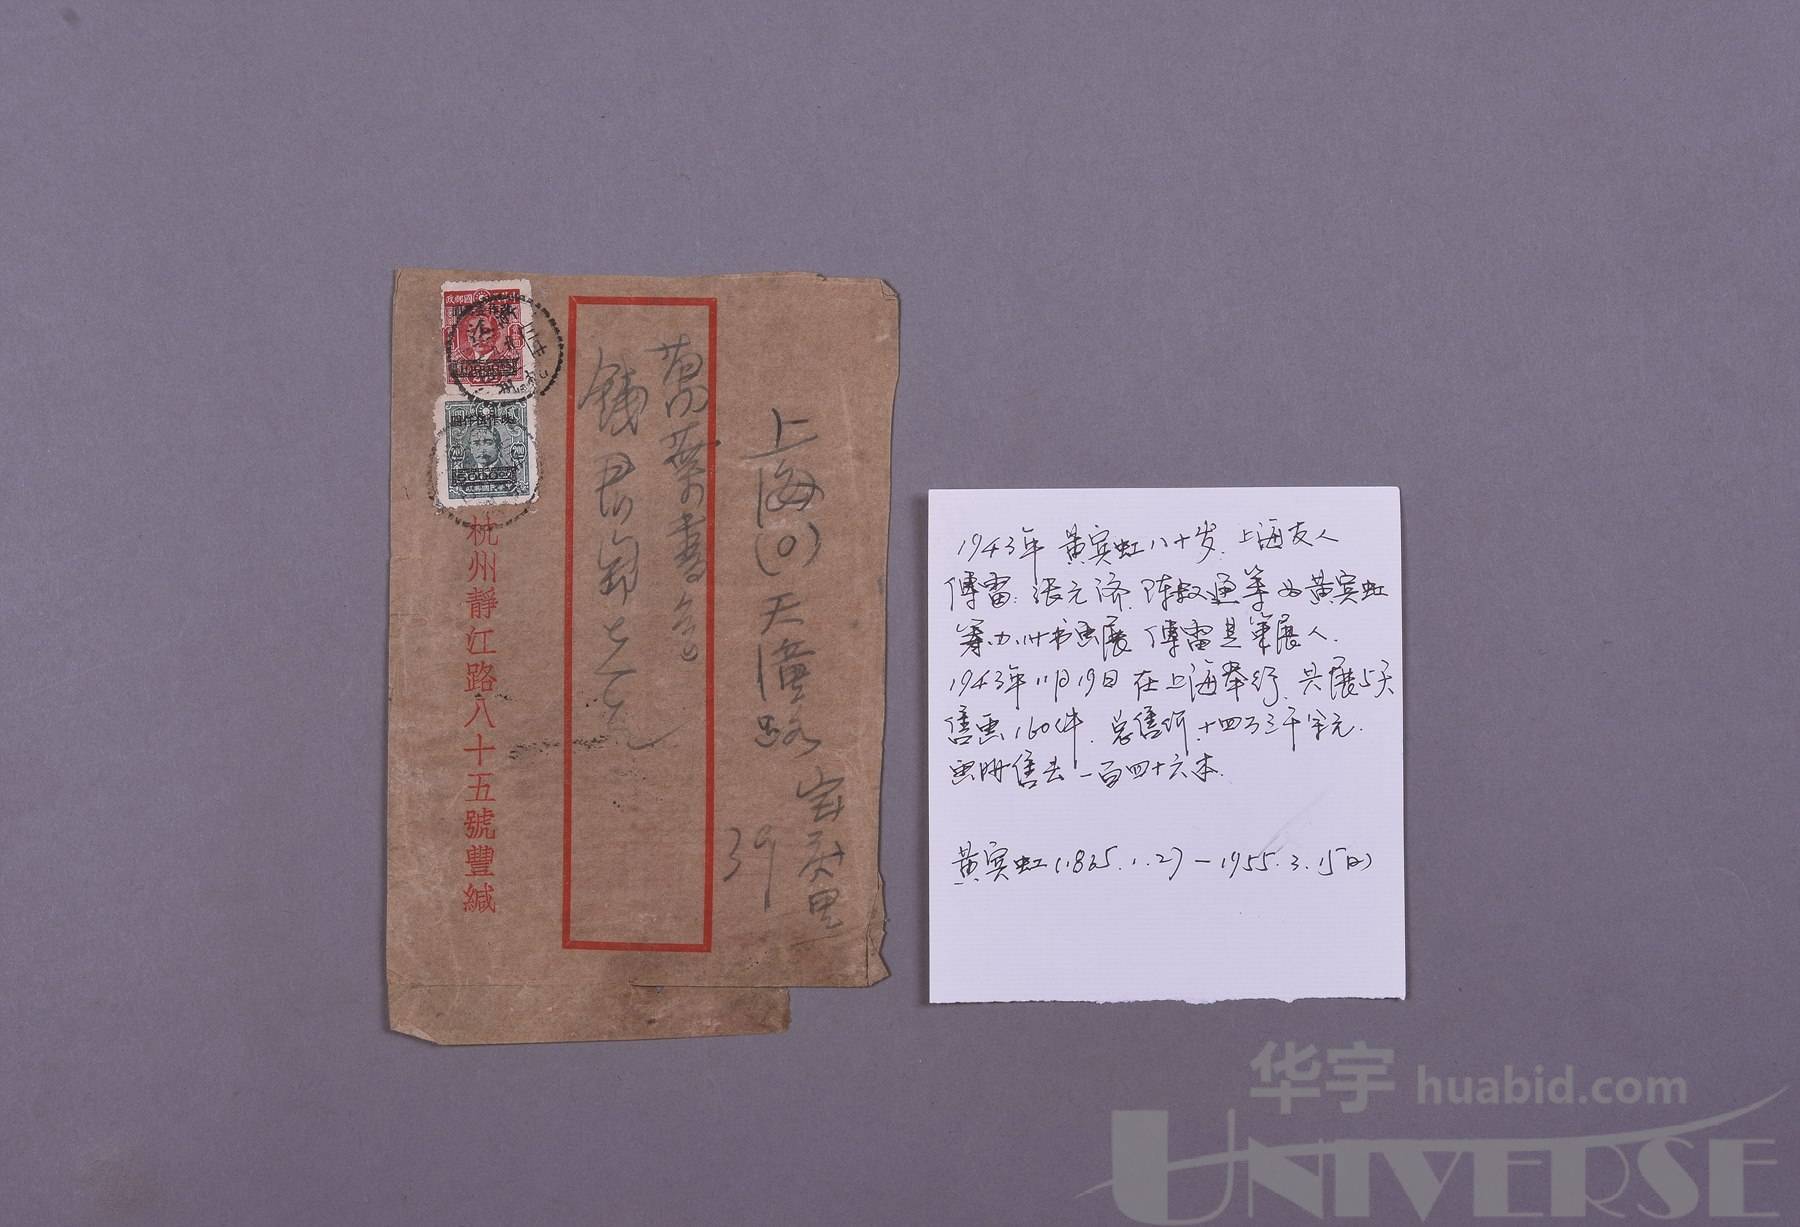 上海(0)天潼路
宝庆里
39
萬葉書店
錢君匋先生
杭州靜江路八十五號豐緘
改作伍仟圓
200
200
5000 00
1943年 黄宾虹八十岁. 上海友人
傅雷. 张元济. 陈叔通等为黄宾虹
筹办书画展 傅雷是策展人.
1943年11月19日在上海举行. 共展5天
售画160件. 总售价十四万三千余元.
画册售去一百四十六本.
黄宾虹(1865.1.27-1955.3.15日)
华宇 huabid.com
UNIVERSE